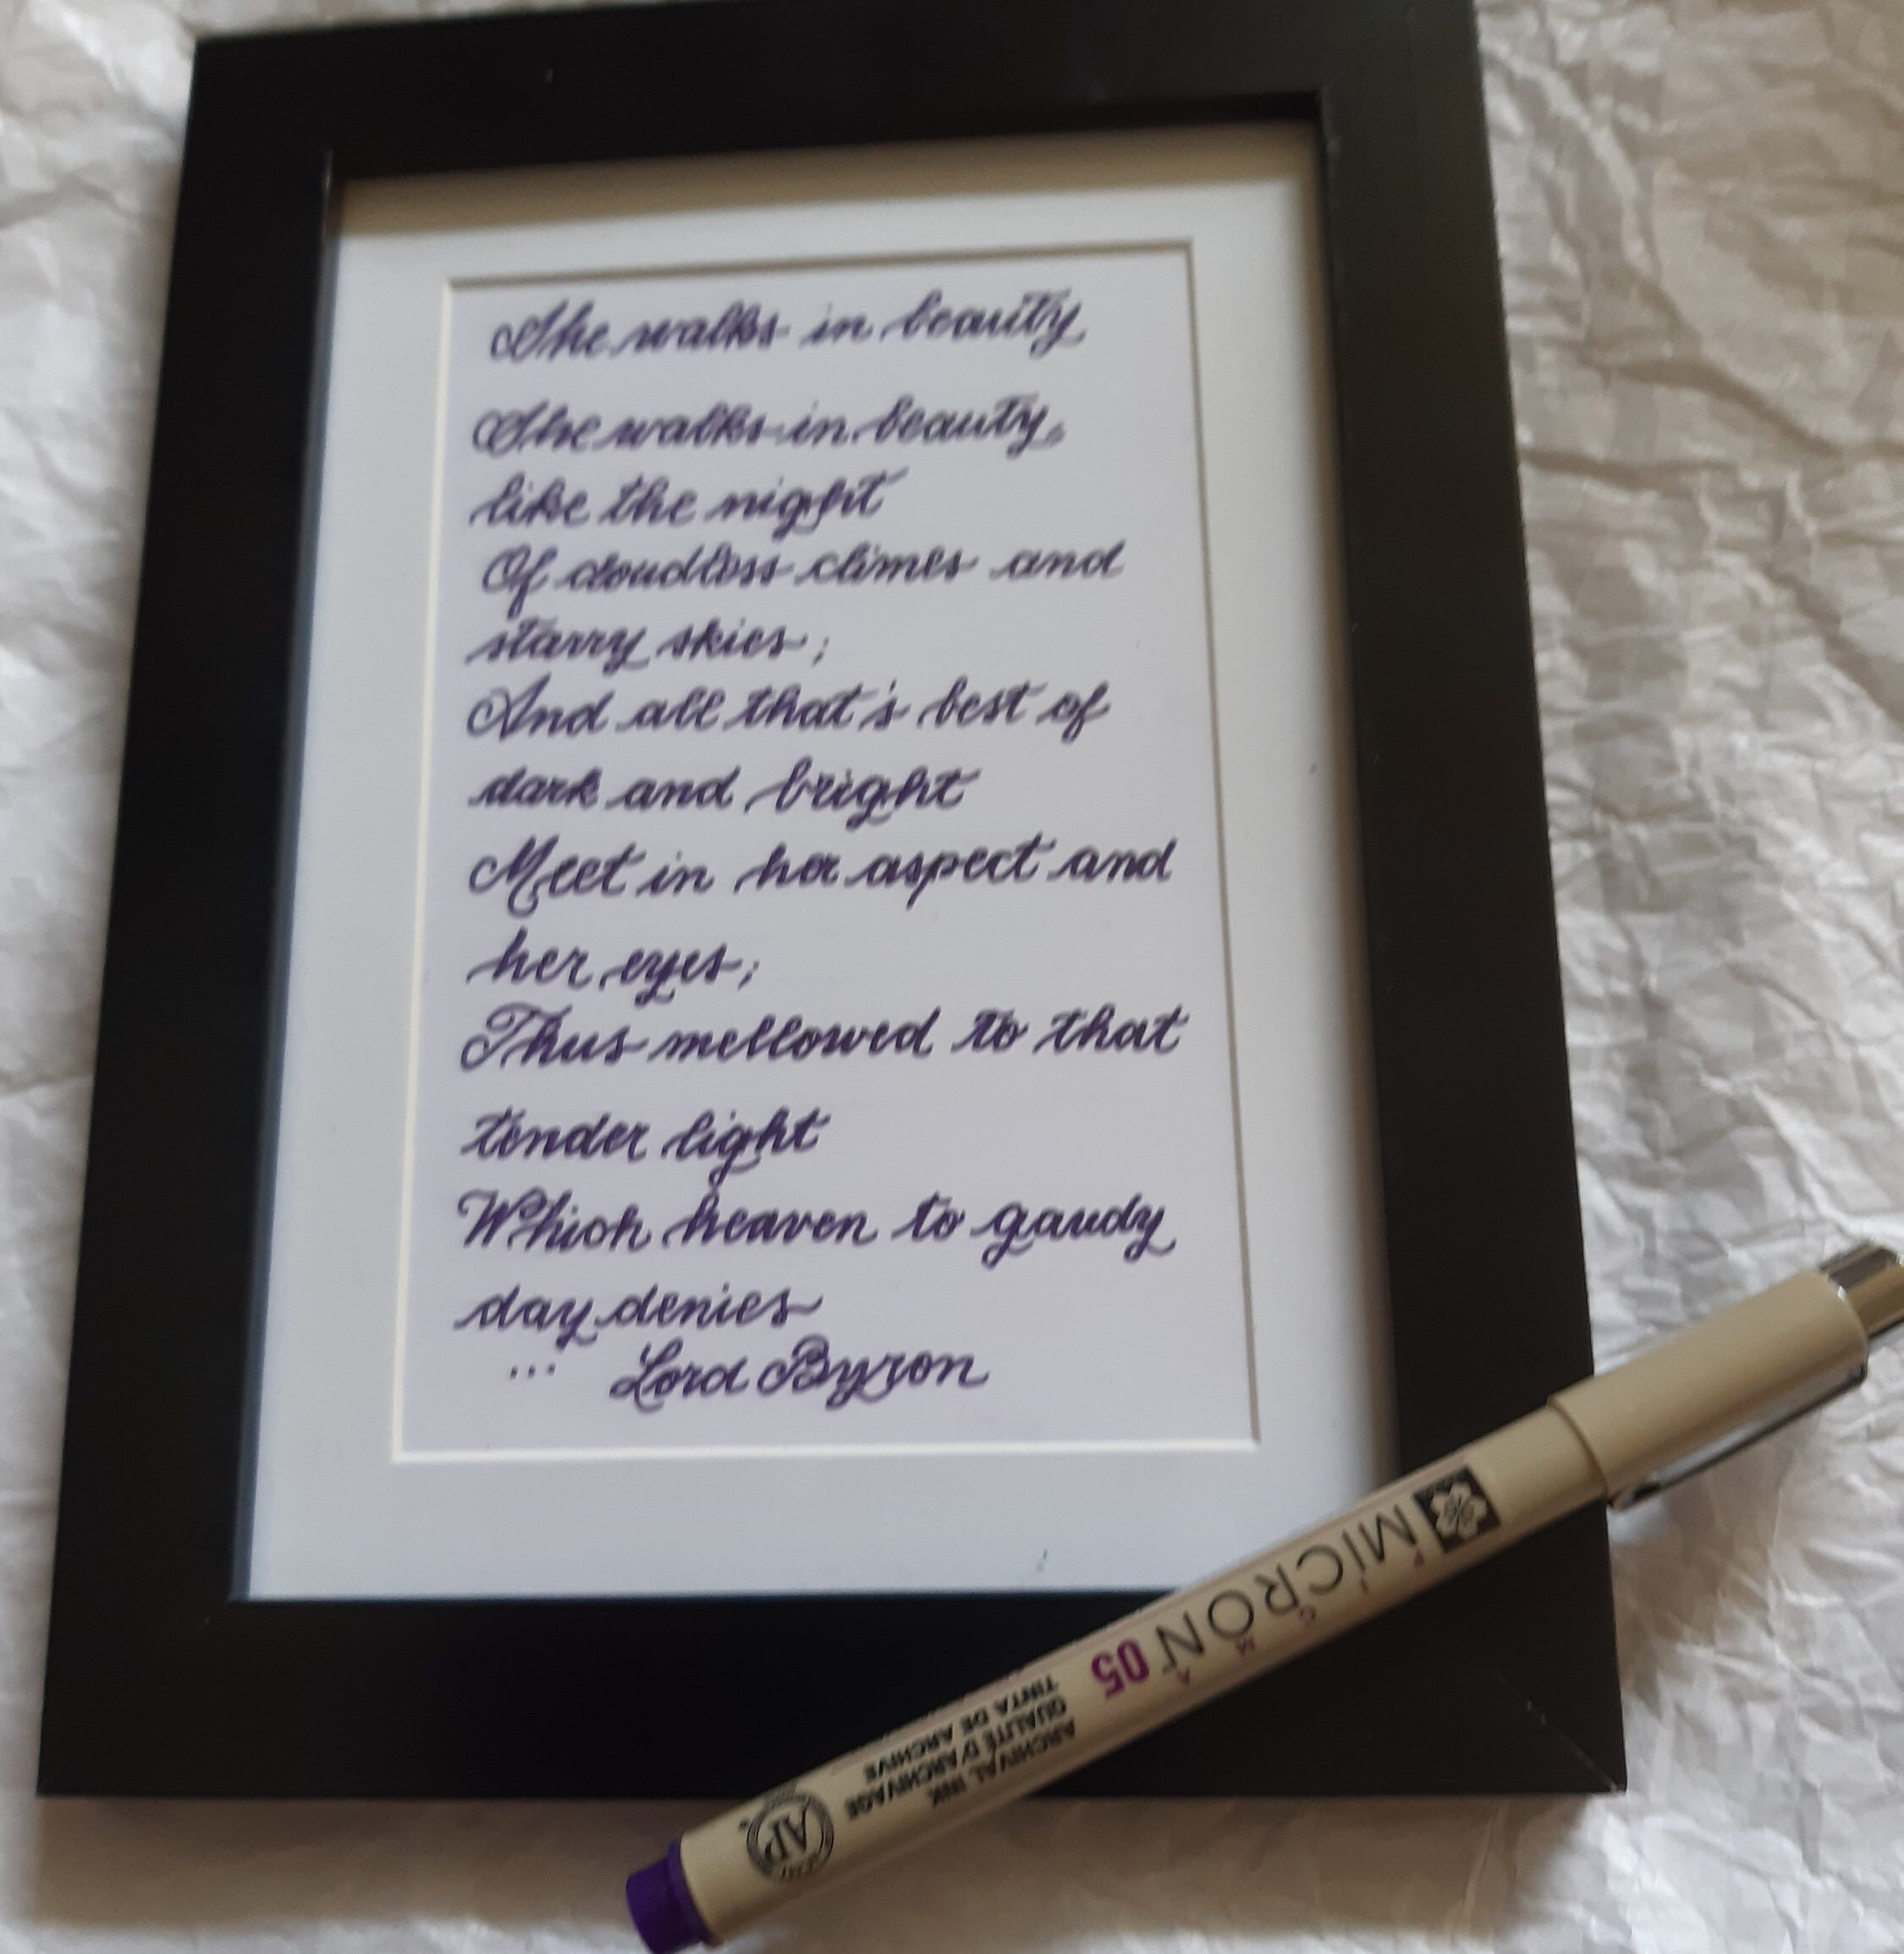 She walks in beauty
She walks in beauty,
like the night
Of cloudless climes and
starry skies;
And all that's best of
dark and bright
Meet in her aspect and
her eyes;
Thus mellowed to that
tender light
Which heaven to gaudy
day denies
... Lord Byron
MICRON 05
PIGMA
ARCHIVAL INK
QUALITÉ D'ARCHIVAGE
TINTA DE ARCHIVE
AP